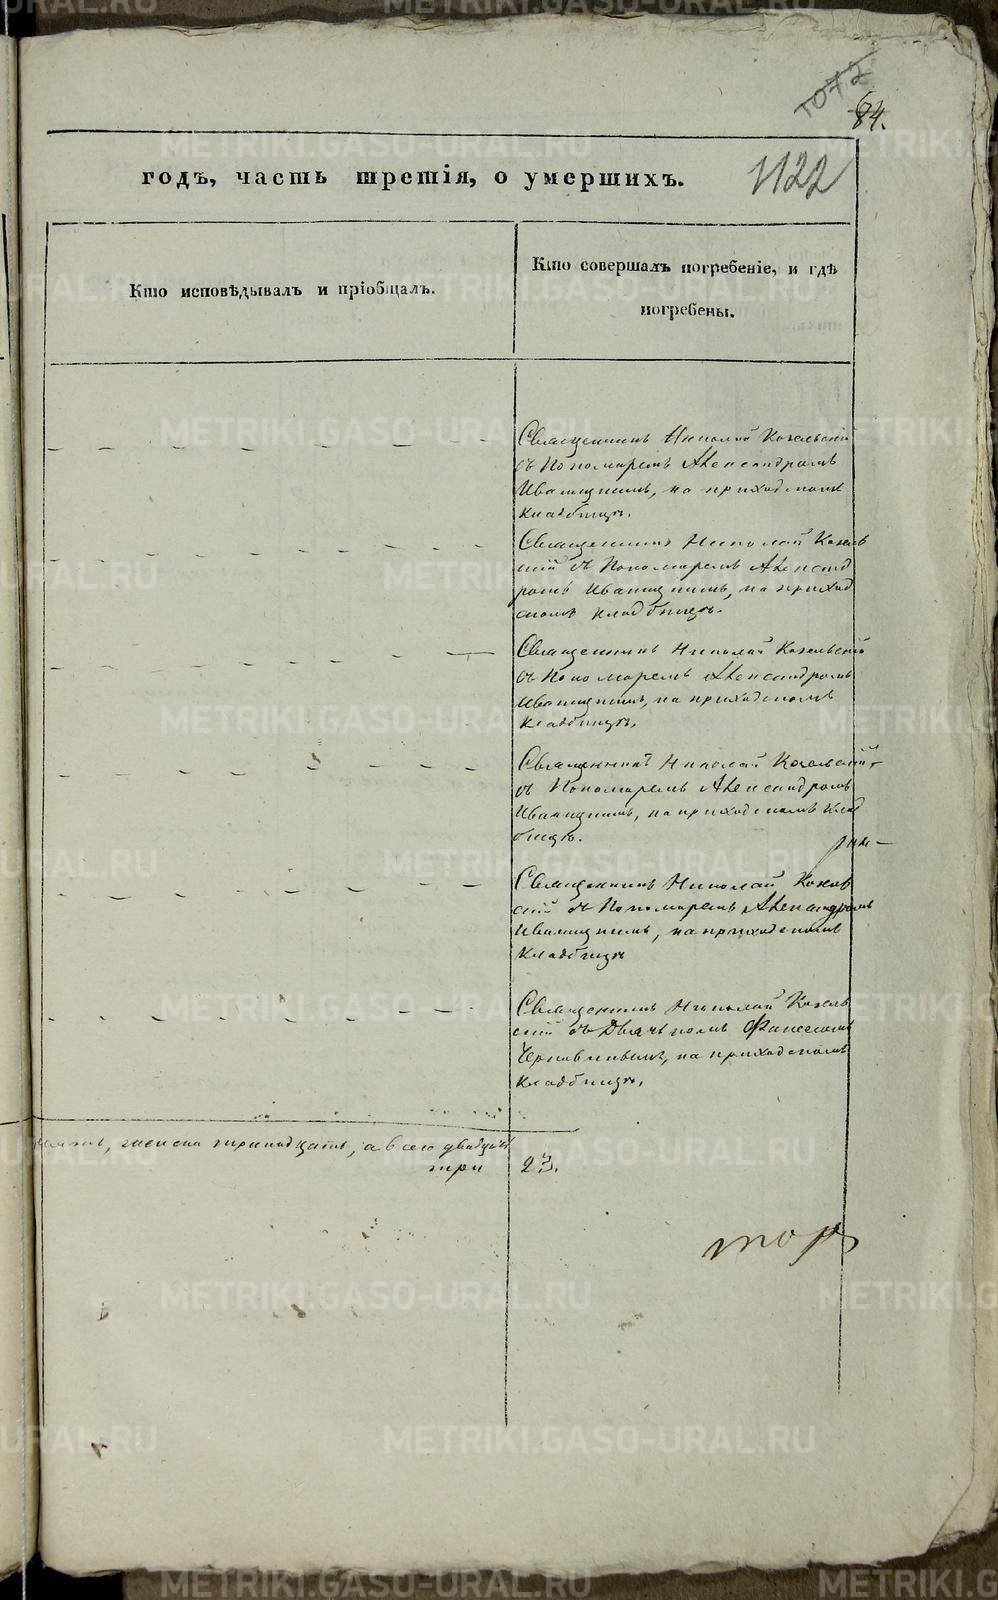 1072
84.
годъ, часть третія, о умершихъ.
1122
Кто исповѣдывалъ и пріобщалъ.
Кто совершалъ погребеніе, и гдѣ
погребены.
Священникъ Николай Козельскій
съ Пономаремъ Александромъ
Иваницкимъ, на приходскомъ
кладбищѣ.
Священникъ Николай Козель
скій съ Пономаремъ Александ
ромъ Иваницкимъ, на приход
скомъ кладбищѣ.
Священникъ Николай Козельскій
съ Пономаремъ Александромъ
Иваницкимъ, на приходскомъ
кладбищѣ,
Священникъ Николай Козельскій
съ Пономаремъ Александромъ
Иваницкимъ, на приходскомъ клад
бищѣ.
Священникъ Николай Козель
скій съ Пономаремъ Александромъ
Иваницкимъ, на приходскомъ
кладбищѣ
Священникъ Николай Козель
скій съ Дьячкомъ
на приходскомъ
кладбищѣ,
женска тринадцать, а всего двадцать
три
23.
METRIKI.GASO-URAL.RU